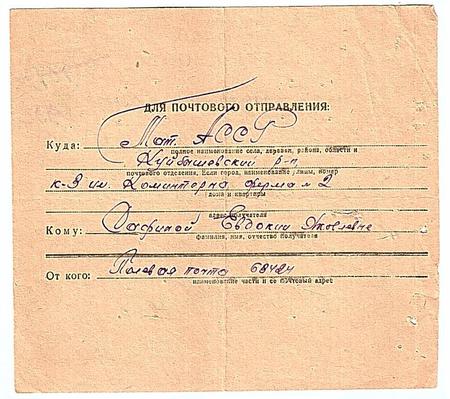 ДЛЯ ПОЧТОВОГО ОТПРАВЛЕНИЯ:
Куда: Тат. АССР
полное наименование села, деревни, района, области и
Куйбышевский р-н,
почтового отделения. Если город, наименование улицы, номер
к-з им. Коминтерна ферма № 2
дома и квартиры
адрес получателя
Кому: Евдокии Яковлевне
фамилия, имя, отчество получателя
От кого: Полевая почта 68424
наименование части и ее почтовый адрес